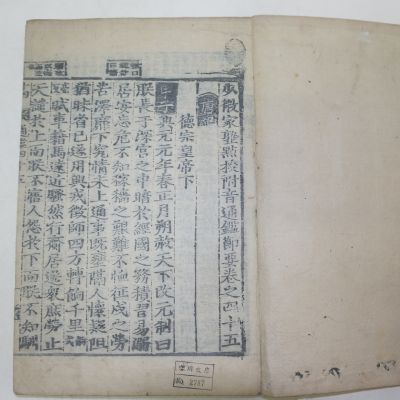 少微家塾點校附音通鑑節要卷之四十五
唐紀
德宗皇帝下
興元元年春正月朔赦天下改元制曰
朕長于深宮之中暗於經國之務積習易溺
居安忘危不知稼穡之艱難不恤征戍之勞
苦澤靡下究情未上通事旣壅隔人懷疑阻
猶昧省已遂用興戎徵師四方轉餉千里
賦車籍馬遠近騷然行齎居送衆庶勞止
天譴於上而朕不寤人怨於下而朕不知
No. 2787